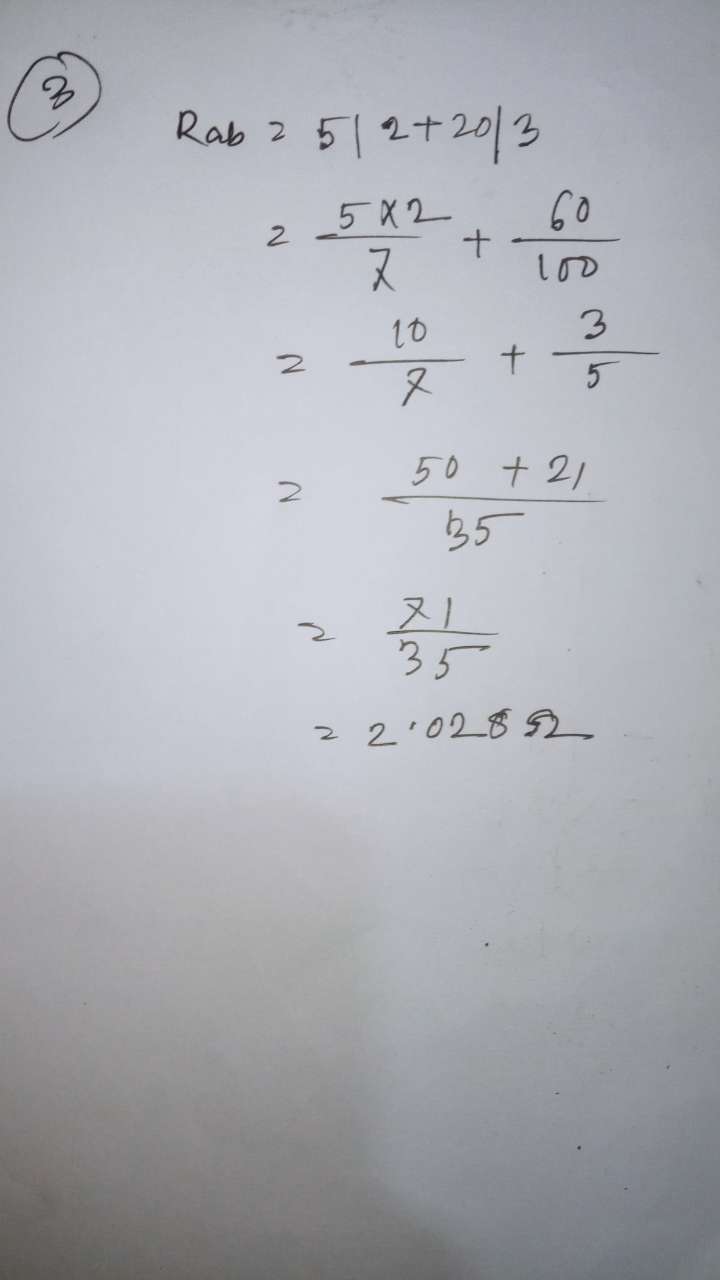 3
Rab = 5 | 2 + 20 | 3
= 5 x 2 / 7 + 60 / 100
= 10 / 7 + 3 / 5
= 50 + 21 / 35
= 71 / 35
= 2.028